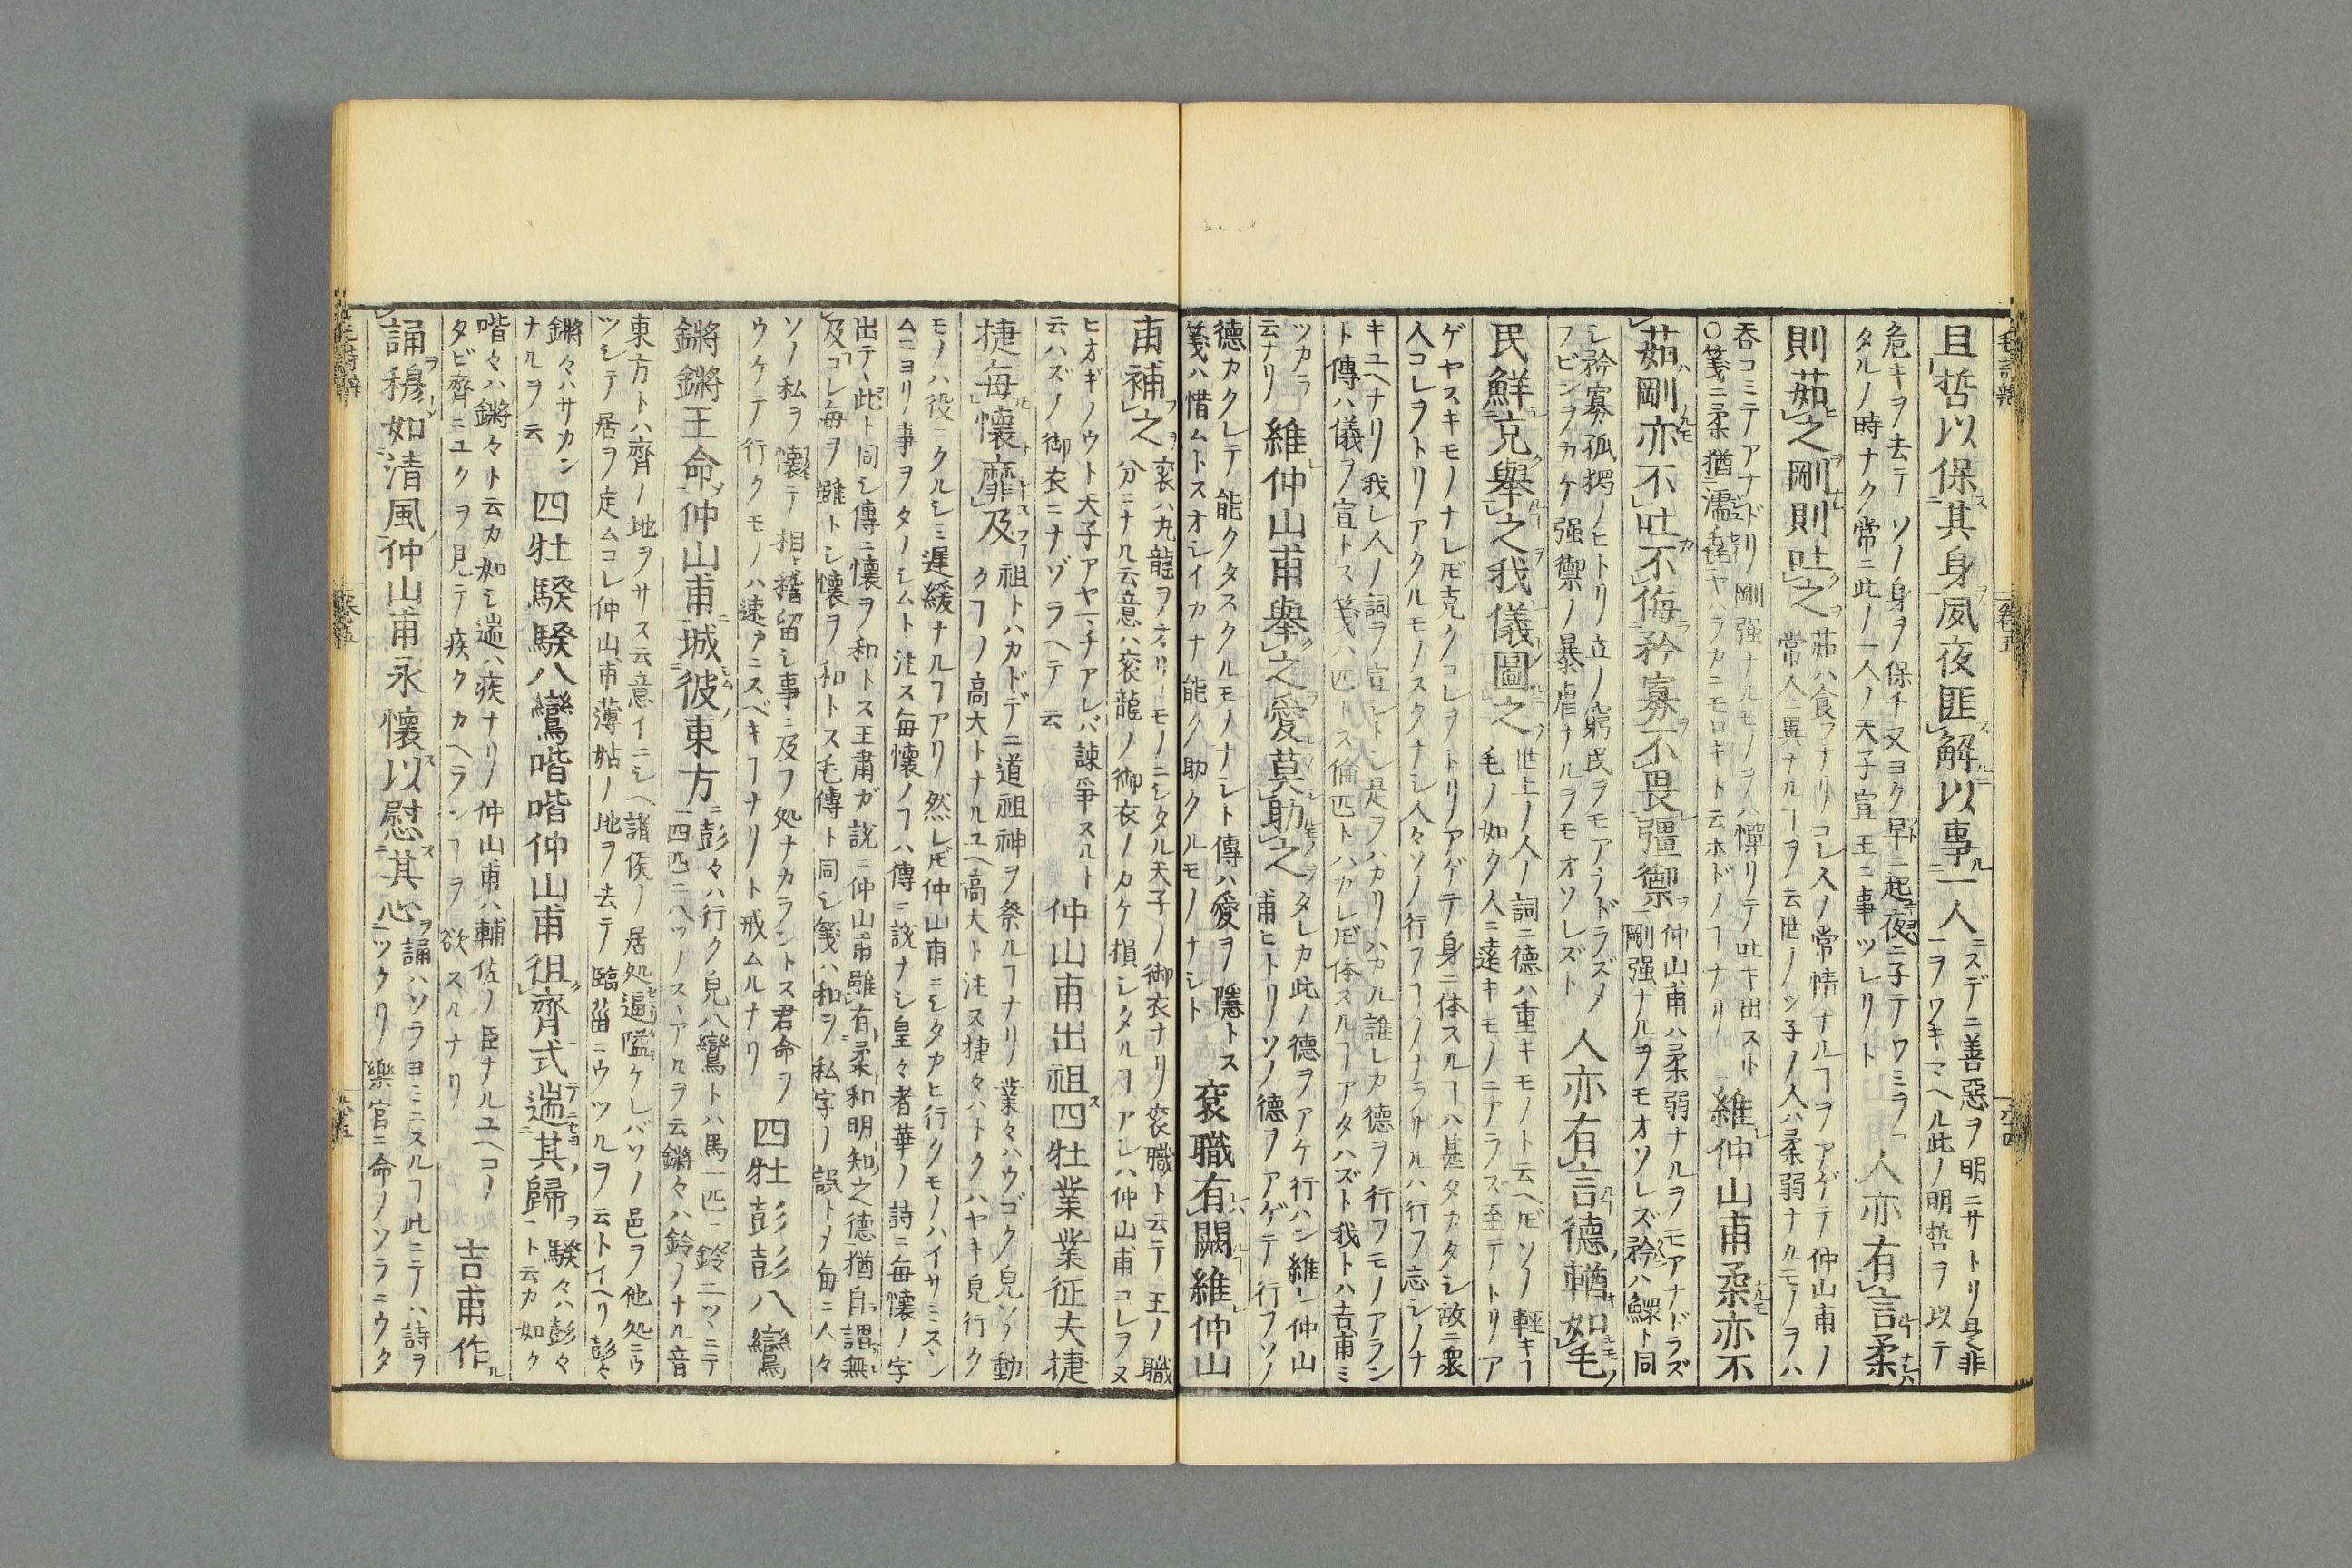 且哲以保其身夙夜匪解以事一人
スデニ善惡ヲ明ニサトリ是非
ヲワキマヘル此ノ明哲ヲ以テ
危キヲ去テソノ身ヲ保チ又ヨク早ニ起夜ニ子テワミヲ
タルノ時ナク常ニ此ノ一人ノ天子宣王ニ事ツレリト
人亦有言柔
則茹之剛則吐之
茹ハ食フナリコレ人ノ常情ナルヿヲアゲテ仲山甫ノ
常人ニ異ナルヿヲ云世ノツ子ノ人ハ柔弱ナルモノヲハ
吞コミテアナドリ剛强ナルモノヲハ憚リテ吐キ出スト
〇箋ニ柔猶濡毳ヤハラカニモロキト云ホドノヿナリ
維仲山甫柔亦不
茹剛亦不吐不侮矜寡不畏彊禦
仲山甫ハ柔弱ナルヲモアナドラズ
剛强ナルヲモオソレズ矜ハ鰥ト同
シ矜寡孤獨ノヒトリ立ノ窮民ヲモアナドラズメ
フビンヲカケ强禦ノ暴虐ナルヲモオソレズト
人亦有言德輶如毛
民鮮克舉之我儀圖之
世上ノ人ノ詞ニ德ハ重キモノト云ヘ𪜈ソノ輕キヿ
毛ノ如ク人ニ遠キモノニアラズ至テトリア
ゲヤスキモノナレ𪜈克クコレヲトリアゲテ身ニ体スルヿハ甚タカタシ故ニ衆
人コレヲトリアクルモノスクナシ人々ソノ行フヿノナラザルハ行フ忘シノナ
キユヘナリ我レ人ノ詞ヲ宣シトシ是ヲハカリハカル誰レカ德ヲ行フモノアラン
ト傳ハ儀ヲ宜トス箋ハ匹トス倫匹トハカレ𪜈体スルヿアタハズト我トハ吉甫ミ
ツカラ
云ナリ
維仲山甫舉之愛莫助之
タレカ此ノ德ヲアケ行ハン維レ仲山
甫ヒトリソノ德ヲアゲテ行フソノ
德カクレテ能クタスクルモノナシト傳ハ愛ヲ隱トス
箋ハ惜ムトスオシイカナ能ク助クルモノナシト
袞職有闕維仲山
甫補之
袞ハ九龍ヲオリモノニシタル天子ノ御衣ナリ袞職ト云テ王ノ職
分ニナル云意ハ袞龍ノ御衣ノカケ損シタルヿアレハ仲山甫コレヲヌ
ヒオギノウト天子アヤマチアレバ諫爭スルト
云ハズノ御衣ニナゾラヘテ云
仲山甫出祖四牡業業征夫捷
捷每懷靡及
祖トハカドデニ道祖神ヲ祭ルヿナリ業々ハウゴク皃ソノ動
クヿノ高大トナルユヘ高大ト注ス捷々ハトクハヤキ皃行ク
モノハ役ニクルシミ遲緩ナルヿアリ然レ𪜈仲山甫ニシタカヒ行クモノハイサミスヽン
ムニヨリ事ヲタノシムト注ス每懷ノヿハ傳ニ說ナシ皇々者華ノ詩ニ每懷ノ字
出テヽ此ト同シ傳ニ懷ヲ和トス王肅ガ說ニ仲山甫雖有柔和明知之德猶自謂無
及コレ每ヲ雖トシ懷ヲ和トス毛傳ト同シ箋ハ和ヲ私字ノ誤トメ每ニ人々
ソノ私ヲ懷テ相稽留シ事ニ及フ処ナカラントス君命ヲ
ウケテ行クモノハ速カニスベキヿナリト戒ムルナリ
四牡彭彭八鸞
鏘鏘王命仲山甫城彼東方
彭々ハ行ク皃八鸞トハ馬一匹ニ鈴二ツヽニテ
四匹ニ八ツノスヽアルヲ云鏘々ハ鈴ノナル音
東方トハ齊ノ地ヲサス云意イニシヘ諸侯ノ居処逼隘ケレバソノ邑ヲ他処ニウ
ツシテ居ヲ定ムコレ仲山甫薄姑ノ地ヲ去テ臨菑ニウツルヲ云トイヘリ彭々
鏘々ハサカン
ナルヲ云
四牡騤騤八鸞喈喈仲山甫徂齊式遄其歸
騤々ハ彭々
ト云カ如ク
喈々ハ鏘々ト云カ如シ遄ハ疾ナリ仲山甫ハ輔佐ノ臣ナルユヘコノ
タビ齊ニユクヲ見テ疾クカヘランヿヲ欲スルナリ
吉甫作
誦穆如清風仲山甫永懷以慰其心
誦ハソラヨミニスルヿ此ニテハ詩ヲ
ツクリ樂官ニ命ノソラニウタ